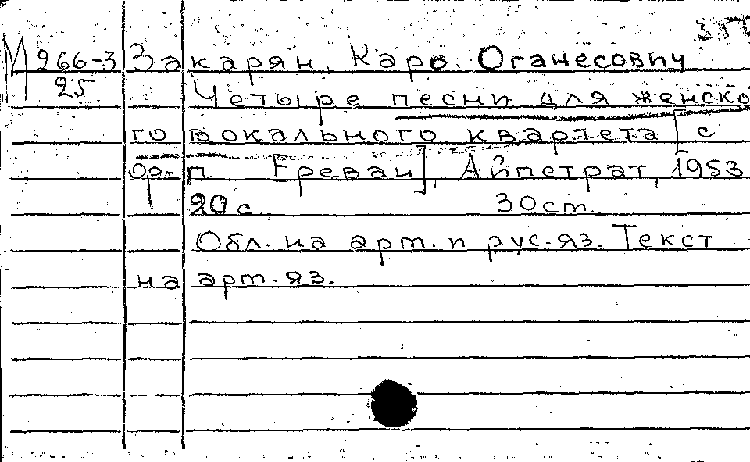 М 966-3 Закарян, Каро Оганесович
25 Четыре песни для женско
го вокального квартета [с
ф-п Ереван], Айпетрат, 1953
20 с. 30 см.
Обл. на арм. и рус. яз. Текст
на арм. яз.